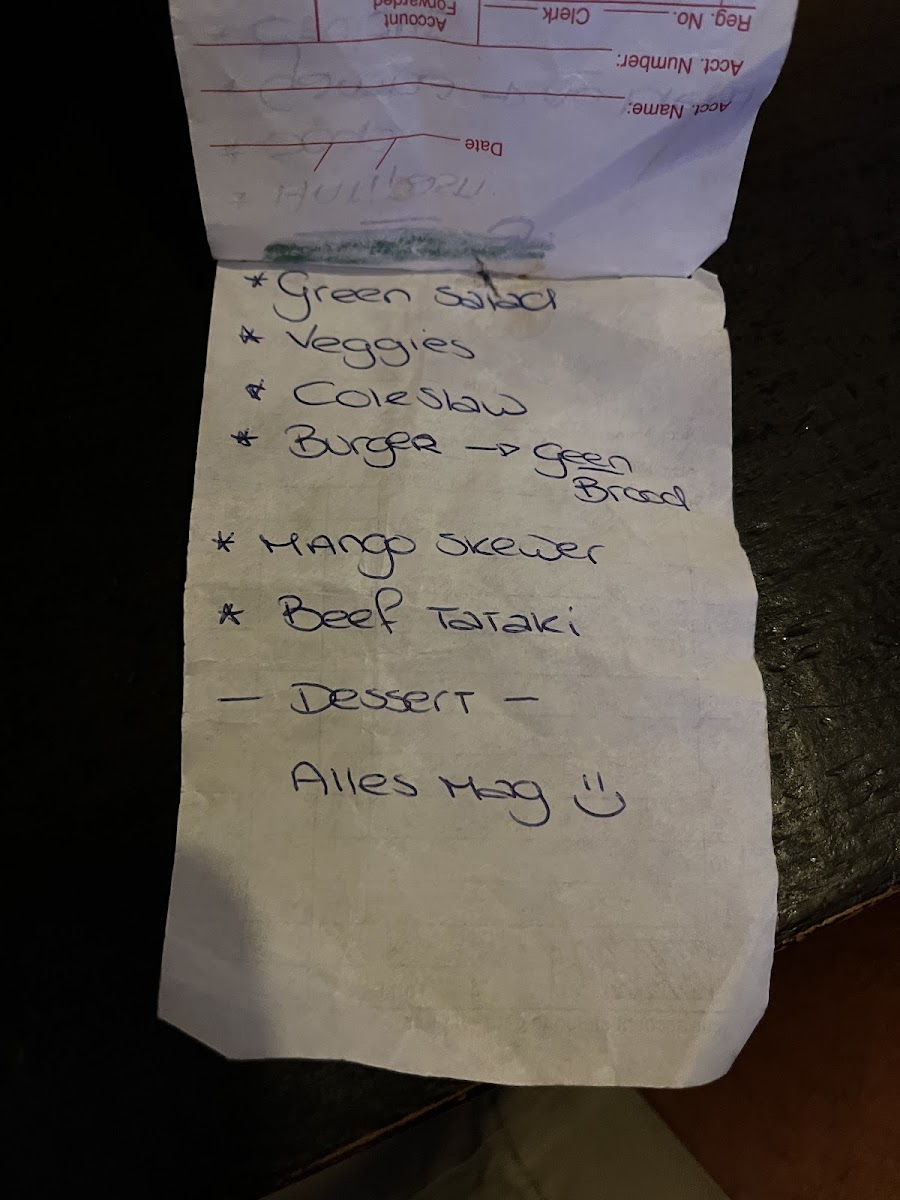 Reg. No. Clerk Account Forwarded
Acct. Number:
Acct. Name:
Date
* Green Salad
* Veggies
* Coleslaw
* Burger → geen
Brood
* Mango Skewer
* Beef Tataki
— Dessert —
Alles Mag